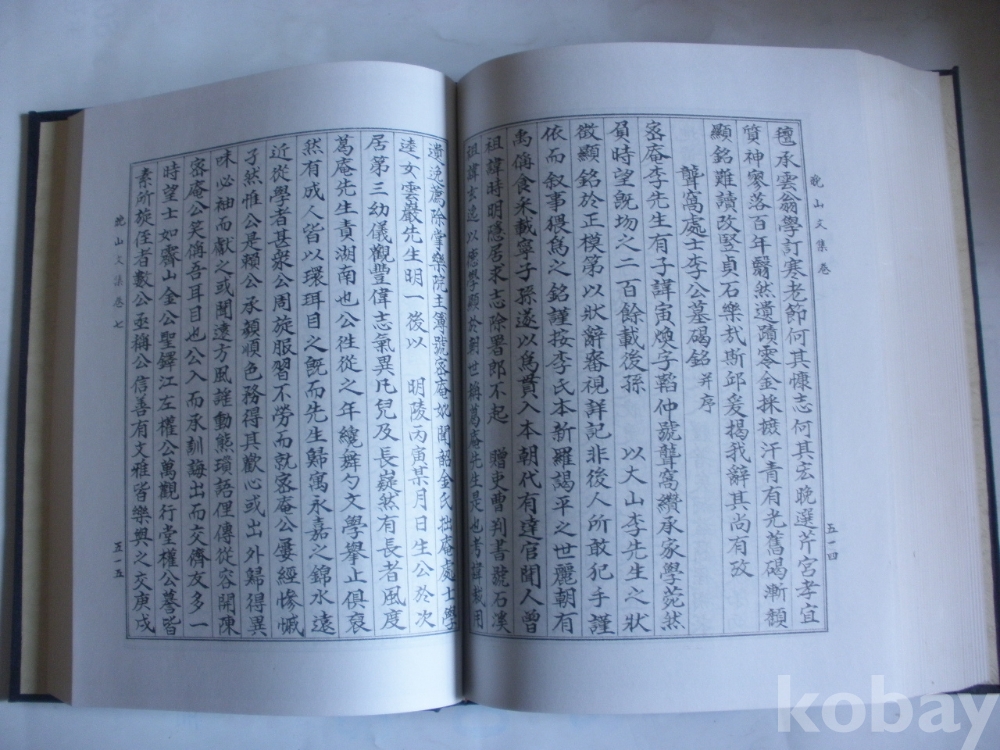 晩山文集卷
氊承雲翁學訂寒老節何其慷志何其宏晩選芹宮孝宜
質神寥落百年翳然遺蹟零金採摭汗青有光舊碣漸頹
顯銘難讀改竪貞石樂㦲斯邱爰揭我辭其尚有攷
聾窩處士李公墓碣銘 并序
密庵李先生有子諱寅煥字韜仲號聾窩纘承家學菀然
負時望旣歿之二百餘載後孫 以大山李先生之狀
徵顯銘於正模第以狀辭審視詳記非後人所敢犯手謹
依而叙事猥爲之銘謹按李氏本新羅謁平之世麗朝有
禹偁食采載寧子孫遂以爲貫入本朝代有達官聞人曾
祖諱時明隱居求志除署郎不起 贈吏曹判書號石溪
祖諱玄逸以德學顯於
世稱葛庵先生是也考諱栽用
五十四
遺逸薦除掌樂院主簿號密庵妣聞韶金氏拙庵處士學
逵女雲巖先生明一後以 明陵丙寅某月日生公於次
居第三幼儀觀豐偉志氣異凡兒及長嶷然有長者風度
葛庵先生責湖南也公徃從之年纔舞勺文學擧止俱裒
然有成人皆以環珥目之旣而先生歸寓永嘉之錦水遠
近從學者甚衆公周旋服習不勞而就密庵公屢經慘慽
孑然惟公是賴公承顔順色務得其歡心或出外歸得異
味必袖而獻之或聞遠方風謠動熊瑣語俚傳從容開陳
密庵公笑稱吾耳目也公入而承訓誨出而交儕友多一
時望士如霽山金公聖鐸江左權公萬觀行堂權公謩皆
素所旋侄者數公亟稱公信善有文雅皆樂與之交庚戌
晩山文集卷七
五十五
kobay